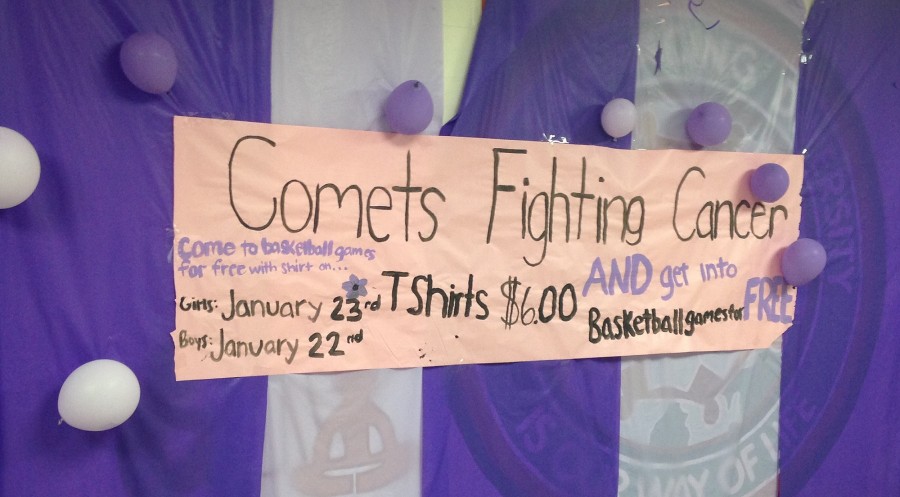 Comets Fighting Cancer
Come to basketball games
for free with shirt on...
Girls: January 23rd
Boys: January 22nd
TShirts $6.00
AND get into
Basketball games for FREE
WAY OF LIFE